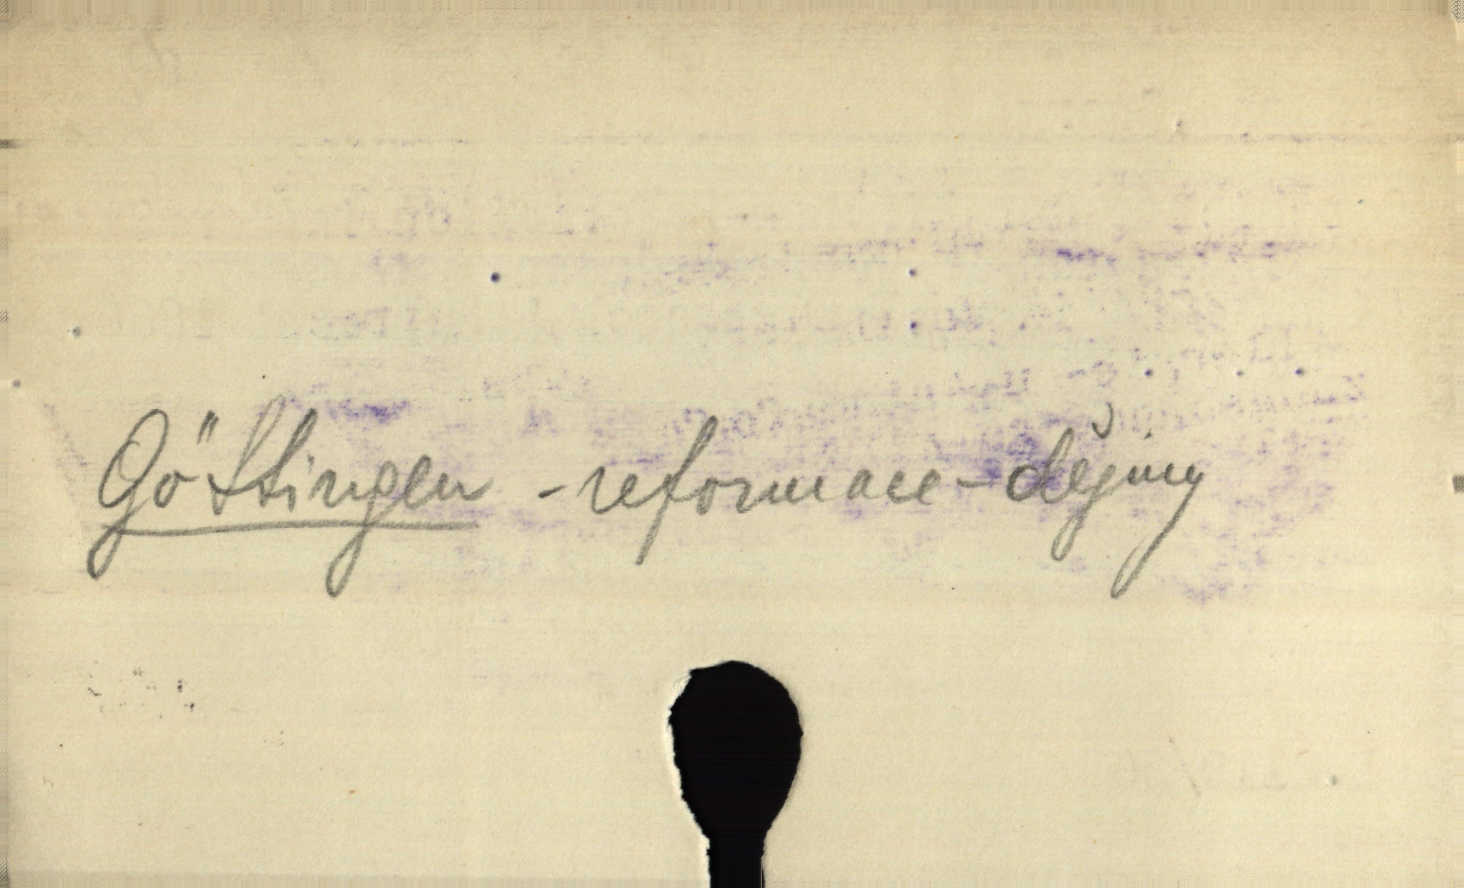 Göttingen - reformace - dějiny